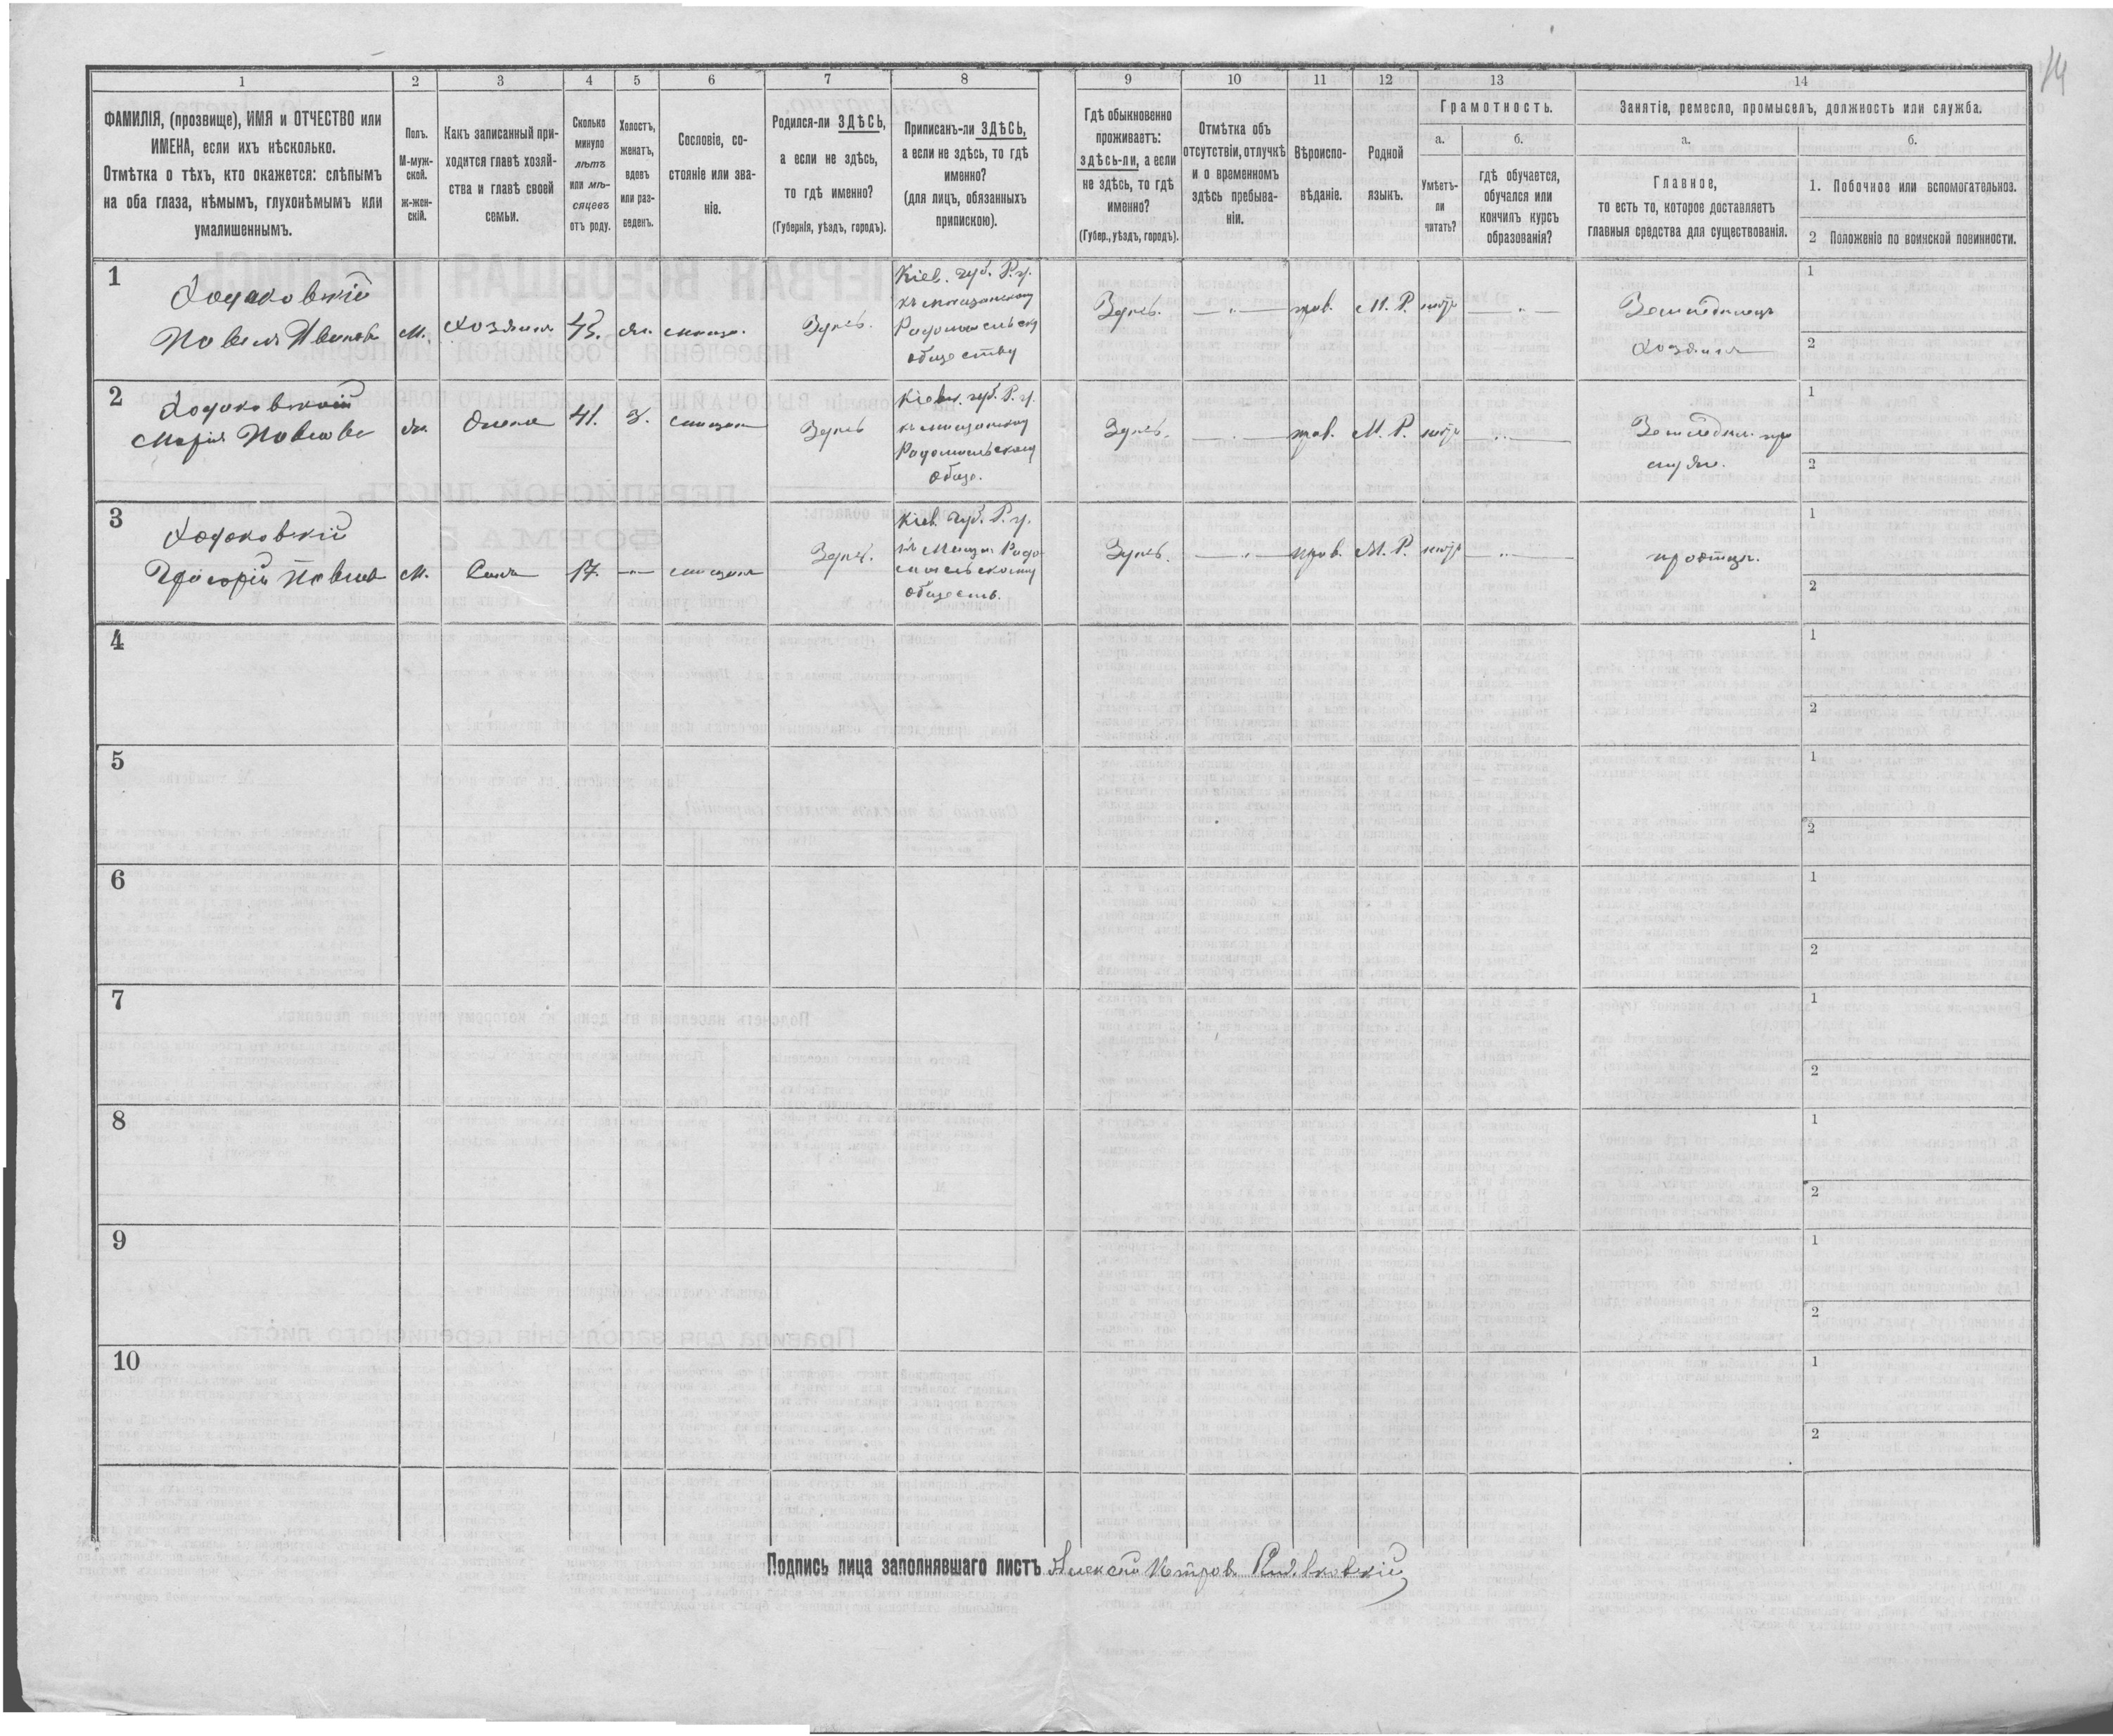 14
1 2 3 4 5 6 7 8 9 10 11 12 13 14
ФАМИЛІЯ, (прозвище), ИМЯ и ОТЧЕСТВО или
ИМЕНА, если ихъ нѣсколько.
Отмѣтка о тѣхъ, кто окажется: слѣпымъ
на оба глаза, нѣмымъ, глухонѣмымъ или
умалишеннымъ.
Полъ.
М-муж-
ской.
ж-жен-
скій.
Какъ записанный при-
ходится главѣ хозяй-
ства и главѣ своей
семьи.
Сколько
минуло
лѣтъ
или мѣ-
сяцевъ
отъ роду.
Холостъ,
женатъ,
вдовъ
или раз-
веденъ.
Сословіе, со-
стояніе или зва-
ніе.
Родился-ли ЗДѢСЬ,
а если не здѣсь,
то гдѣ именно?
(Губернія, уѣздъ, городъ).
Приписанъ-ли ЗДѢСЬ,
а если не здѣсь, то гдѣ
именно?
(для лицъ, обязанныхъ
припискою).
Гдѣ обыкновенно
проживаетъ:
здѣсь-ли, а если
не здѣсь, то гдѣ
именно?
(Губер., уѣздъ, городъ).
Отмѣтка объ
отсутствіи, отлучкѣ
и о временномъ
здѣсь пребыва-
ніи.
Вѣроиспо-
вѣданіе.
Родной
языкъ.
Грамотность.
а.
Умѣетъ-
ли
читать?
б.
гдѣ обучается,
обучался или
кончилъ курсъ
образованія?
Занятіе, ремесло, промыселъ, должность или служба.
а.
Главное,
то есть то, которое доставляетъ
главныя средства для существованія.
б.
1. Побочное или вспомогательное.
2 Положеніе по воинской повинности.
1
Ходаковскій
Павелъ Иванов
м.
хозяинъ
43.
жн.
мѣщан.
Здѣсь.
Кіев. губ. Р. у.
къ мѣщанскому
Радомысльском
обществу
Здѣсь.
— „ —
прав.
М. Р.
нетъ
— „ —
Земледѣлецъ
хозяинъ
1
2
2
Марія Павлова
жн.
Жена
41.
З.
мѣщан
Здѣсь
Кіевс. губ. Р. у.
къ мѣщанскому
Радомысльскому
обще.
Здѣсь.
прав.
М. Р.
нетъ
— „ —
Земледѣл. при
мужѣ.
1
2
3
Ходаковскій
Григорій Павлов
м.
Сынъ
17.
— „ —
мѣщанинъ
Здѣсь.
Кіев. губ. Р. у.
къ Мещан. Радо-
мысльскому
обществ.
Здѣсь.
— „ —
прав.
М. Р.
нетъ
— „ —
при отцѣ.
1
2
4
1
2
5
1
2
6
1
2
7
1
2
8
1
2
9
1
2
10
1
2
Подпись лица заполнявшаго листъ Алексѣй Петров